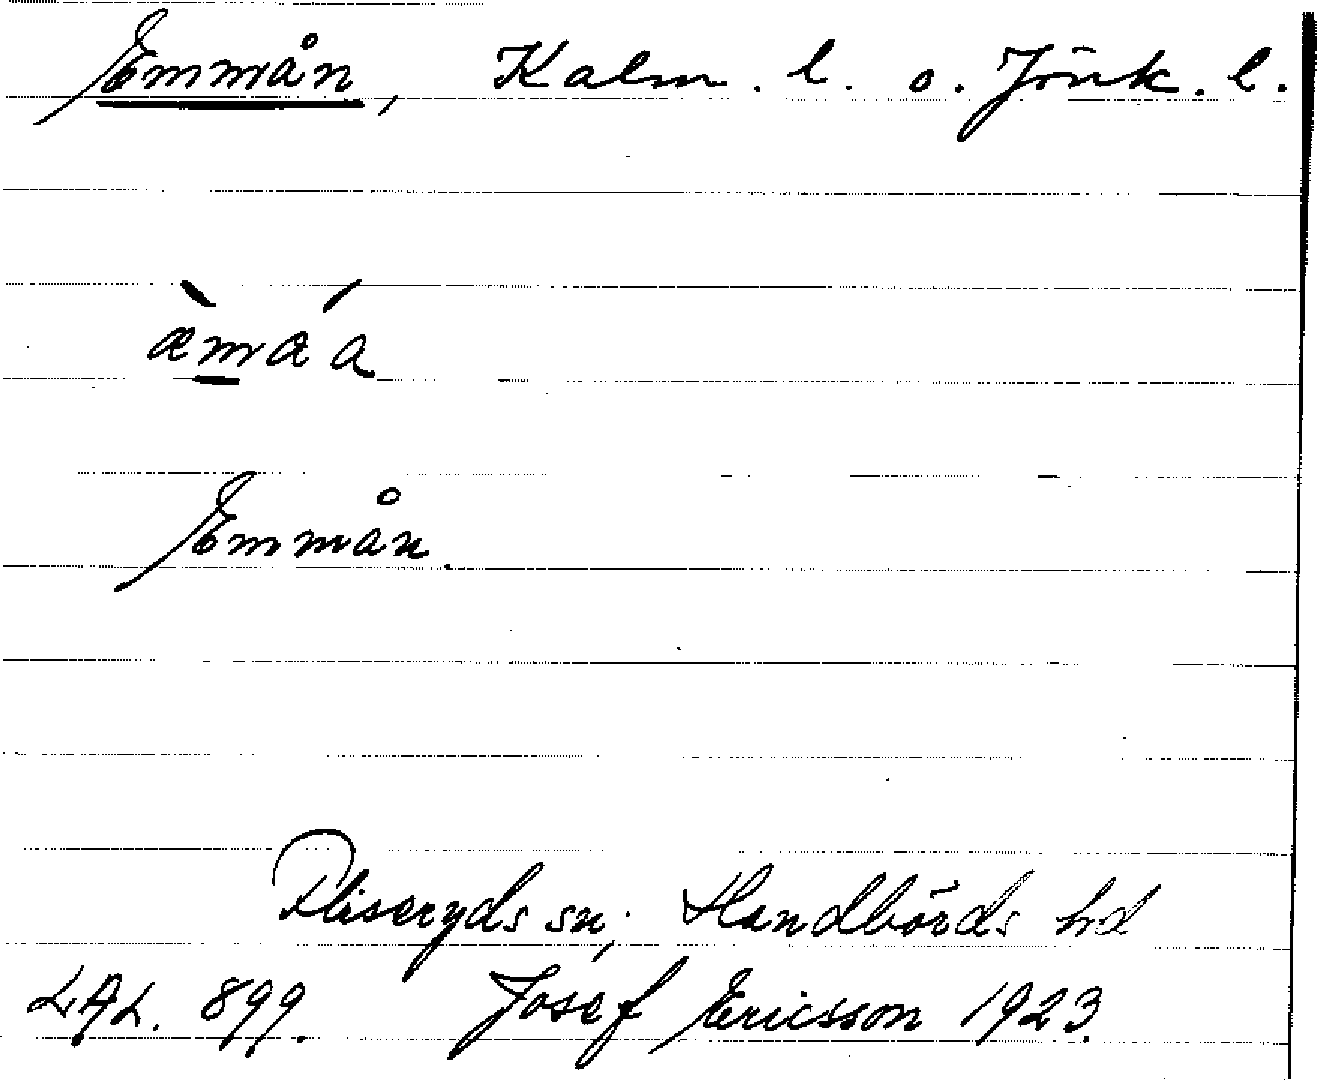 Emmån, Kalm. l. o. Jönk. l.
æ̀má a
Emmån.
Fliseryds sn; Handbörds hd
LAL. 899. Josef Ericsson 1923.